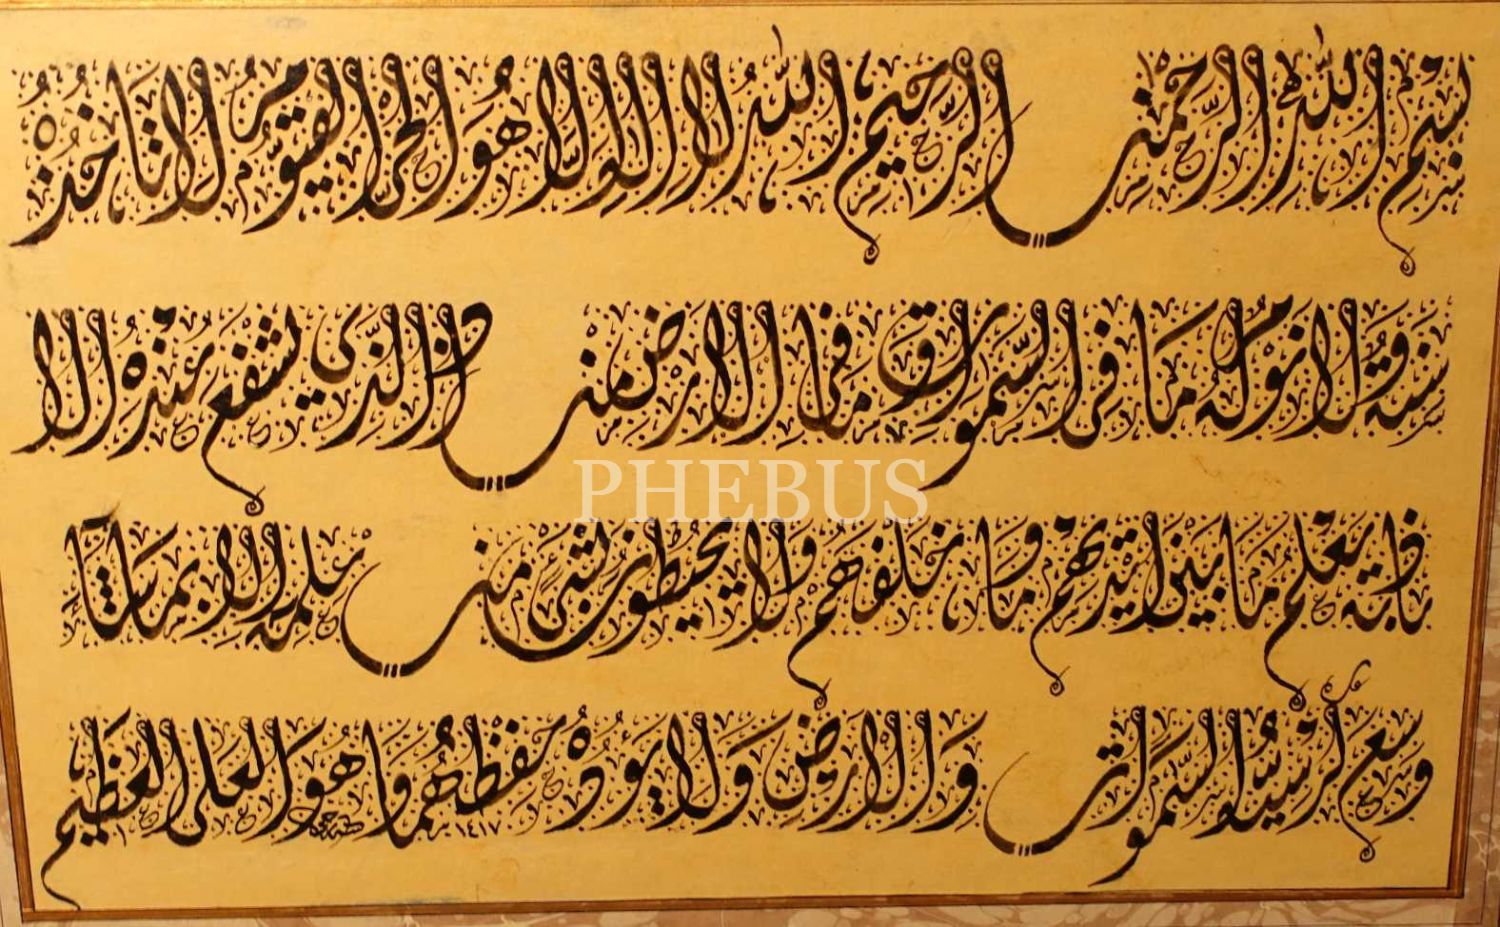 بسم الله الرحمن الرحيم الله لا اله الا هو الحي القيوم لا تاخذه
سنة ولا نوم له ما في السموات وما في الارض من ذا الذي يشفع عنده الا
PHEBUS
باذنه يعلم ما بين ايديهم وما خلفهم ولا يحيطون بشئ من علمه الا بما شاء
وسع كرسيه السموات والارض ولا يؤده حفظهما وهو العلي العظيم
١٤١٧